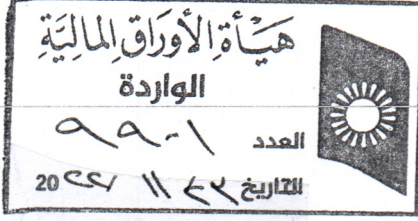 هَيْأَةُ الأَوْرَاقِ المَالِيَّةِ
الواردة
العدد ٩٩٠١
التاريخ ٢٣ / ١١ / 20٢٢